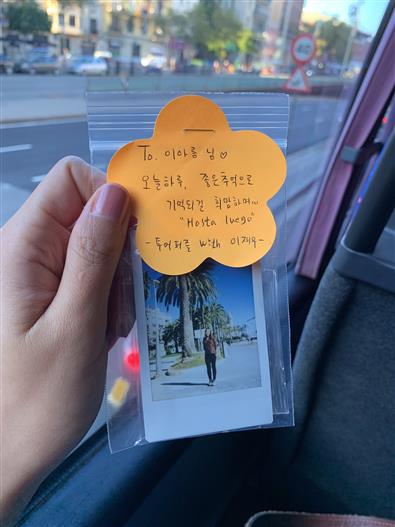 To. 이아름 님 ♡
오늘하루, 좋은추억으로
기억되길 희망하며...
"Hasta luego"
- 투어퍼즐 with 이재욱 -